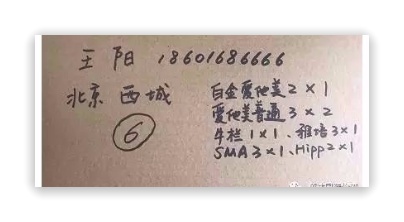 王 阳 18601686666
北京 西城
⑥
白金爱他美2×1
爱他美普通3×2
牛栏1×1、雅培3×1
SMA3×1、Hipp2×1